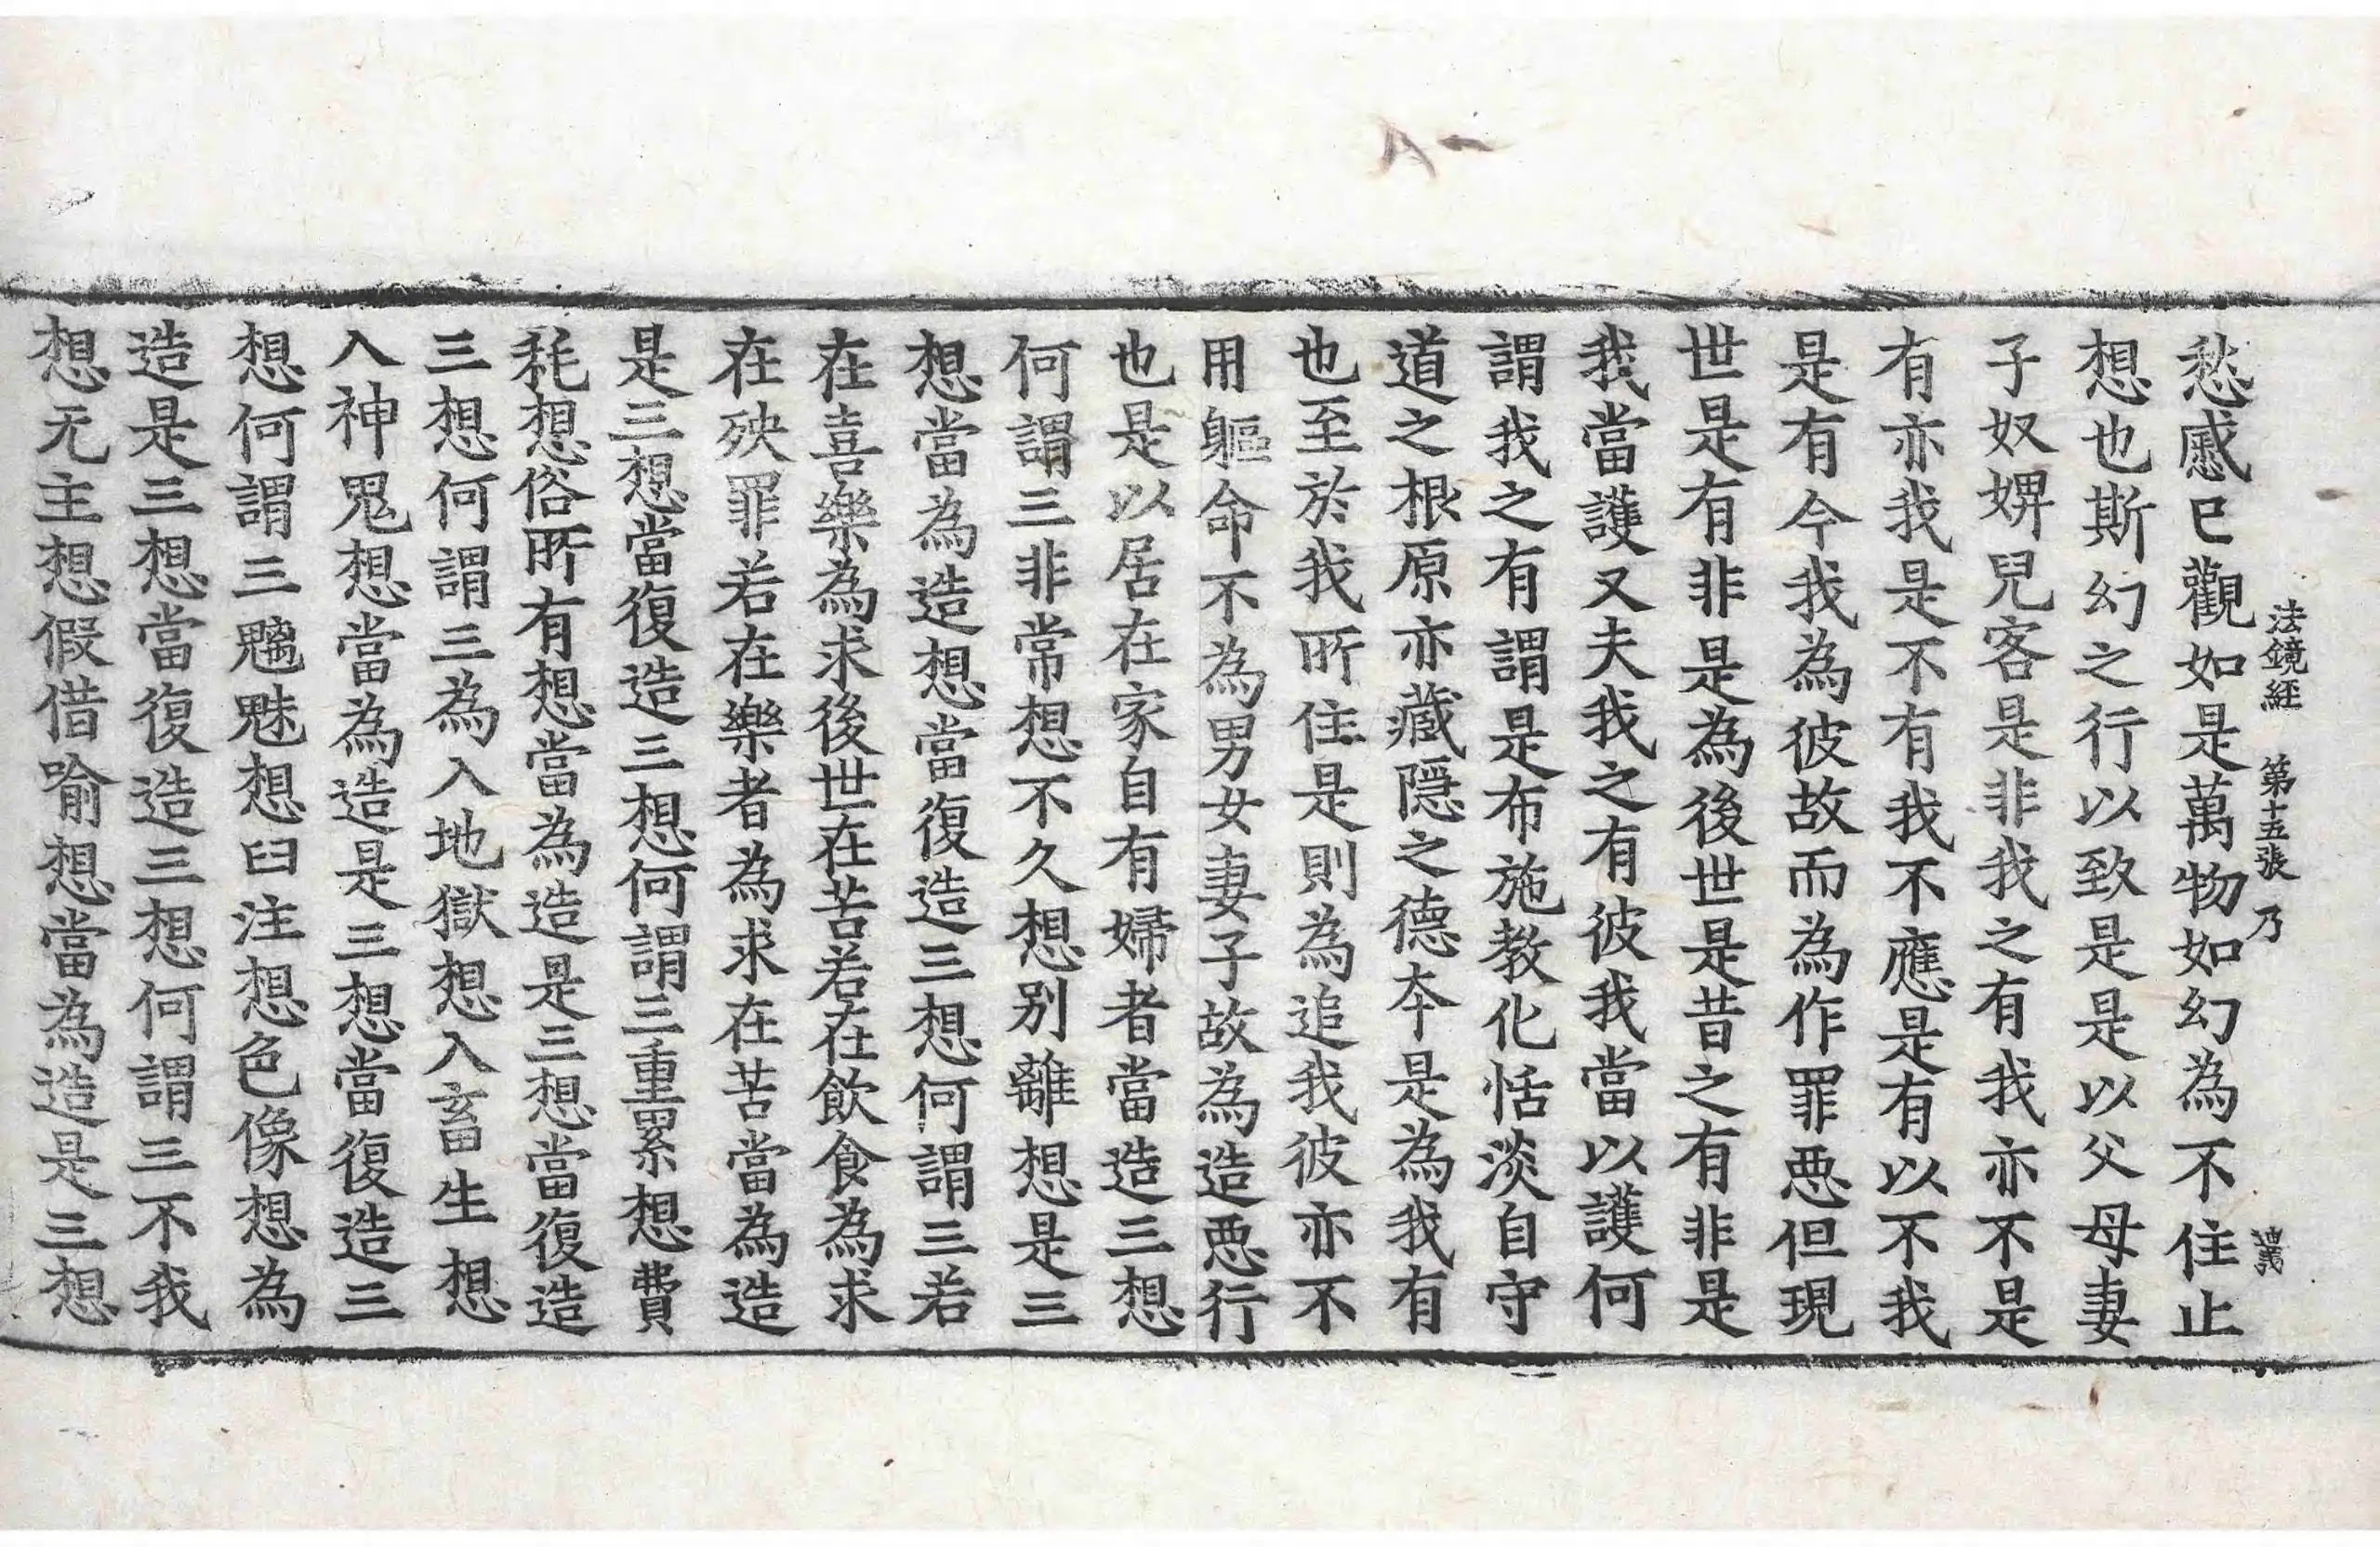 法鏡経 第十五張 乃
愁慼已觀如是萬物如幻為不住止
想也斯幻之行以致是是以父母妻
子奴婢兒客是非我之有我亦不是
有亦我是不有我不應是有以不我
是有今我為彼故而為作罪悪但現
世是有非是為後世是昔之有非是
我當護又夫我之有彼我當以護何
謂我之有謂是布施教化恬淡自守
道之根原亦藏隠之德夲是為我有
也至於我所住是則為追我彼亦不
用軀命不為男女妻子故為造悪行
也是以居在家自有婦者當造三想
何謂三非常想不久想別離想是三
想當為造想當復造三想何謂三若
在喜樂為求後世在苦若在飲食為求
在殃罪若在樂者為求在苦當為造
是三想當復造三想何謂三重累想費
耗想俗所有想當為造是三想當復造
三想何謂三為入地獄想入畜生想
入神鬼想當為造是三想當復造三
想何謂三魑魅想臼注想色像想為
造是三想當復造三想何謂三不我
想无主想假借喻想當為造是三想